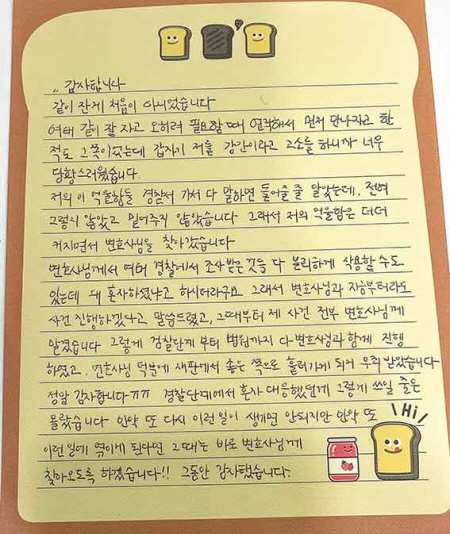 ,, 감사합니다
같이 잔게 처음이 아니었습니다
여태 같이 잘 자고 오히려 필요할 때 연락해서 먼저 만나자고 한
적도 그쪽이었는데 갑자기 저를 강간이라고 고소를 하니까 너무
당황스러웠습니다
저의 이 억울함을 경찰서 가서 다 말하면 들어줄 줄 알았는데, 전혀
그렇지 않았고 믿어주지 않았습니다 그래서 저의 억울함은 더더
커지면서 변호사님을 찾아갔습니다
변호사님께서 여태 경찰에서 조사받은 것들 다 불리하게 작용할 수도
있는데 왜 혼자하셨냐고 하시더라구요 그래서 변호사님과 지금부터라도
사건 진행하겠다고 말씀드렸고, 그때부터 제 사건 전부 변호사님께
맡겼습니다 그렇게 검찰단계부터 법원까지 다 변호사님과 함께 진행
하였고, 변호사님 덕분에 재판에서 좋은 쪽으로 흘러가게 되어 무죄 받았습니다
정말 감사합니다ㅠㅠ 경찰단계에서 혼자 대응했던게 그렇게 쓰일 줄은
몰랐습니다 만약 또 다시 이런일이 생기면 안되지만 만약 또
이런일에 엮이게 된다면 그때는 바로 변호사님께
찾아오도록 하겠습니다!! 그동안 감사했습니다.
Hi!